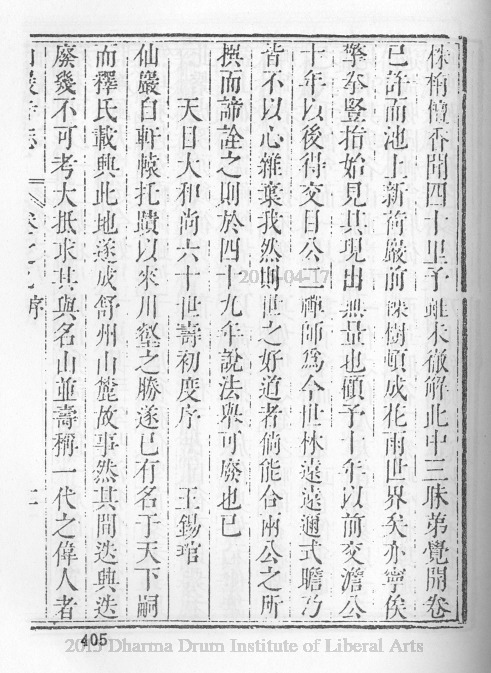 株栴檀香聞四十里予雖未徹解此中三昧弟覺開卷
已許而池上新荷巖前踈樹頓成花雨世界矣亦寧俟
擎拳豎指始見其現出無量也頋予十年以前交澹公
十年以後得交目公二禪師爲今世林遠遠邇式瞻乃
皆不以心雜棄我然則世之好道者倘能合兩公之所
撰而諦詮之則於四十九年說法舉可廢也已
天目大和尚六十世壽初度序 王錫琯
仙巖自軒轅托蹟以來川壑之勝遂已有名于天下嗣
而釋氏載興此地遂成舒州山麓故事然其間迭興迭
廢幾不可考大抵求其與名山並壽稱一代之偉人者
山 志 卷之 序 二
405
2015-04-17
2015 Dharma Drum Institute of Liberal Arts